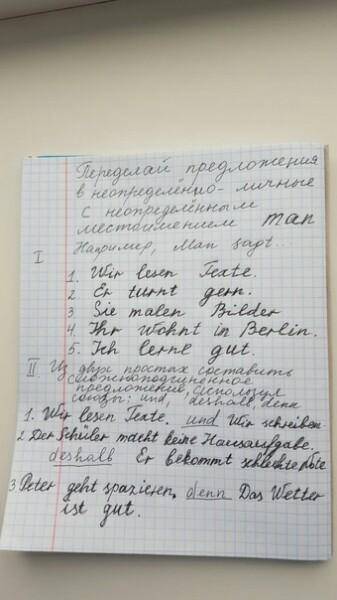 Переделай предложения
в неопределённо-личные
с неопределённым
местоимением man
Например, Man sagt..
I
1. Wir lesen Texte.
2. Er turnt gern.
3 Sie malen Bilder
4. Ihr wohnt in Berlin.
5. Ich lerne gut.
II. Из двух простых составить
сложноподчиненное
предложение, используя
союзы: und, deshalb, denn
1. Wir lesen Texte. und Wir schreiben.
2 Der Schüler macht keine Hausaufgabe.
deshalb Er bekommt schlechte Note
3 Peter geht spazieren, denn Das Wetter
ist gut.